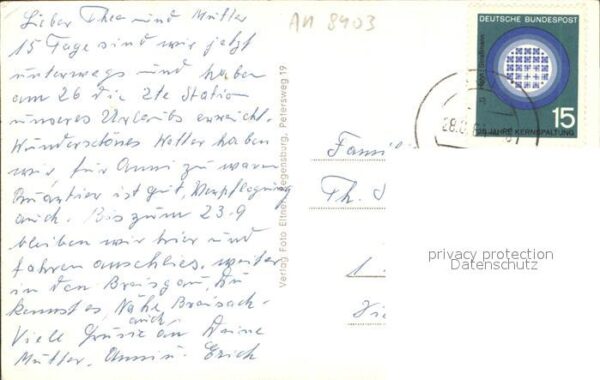 Lieber Theo und Mutter
15 Tage sind wir jetzt
unterwegs und haben
am 26 die 2te Station
unseres Urlaubs erreicht.
Wunderschönes Wetter haben
wir für Anni zu warm
Quartier ist gut, Verpflegung
auch. Bis zum 23.9
bleiben wir hier und
fahren anschlies. weiter
in den Breisgau, Du
kennst es, Nähe Breisach.
Viele Grüsse auch an Deine
Mutter. Anni u. Erich
AN 8403
Verlag Foto Regensburg, Petersweg 19
DEUTSCHE BUNDESPOST
Hahn / Straßmann
15
25 JAHRE KERNSPALTUNG
28.
Famil
Th.
privacy protection
Datenschutz